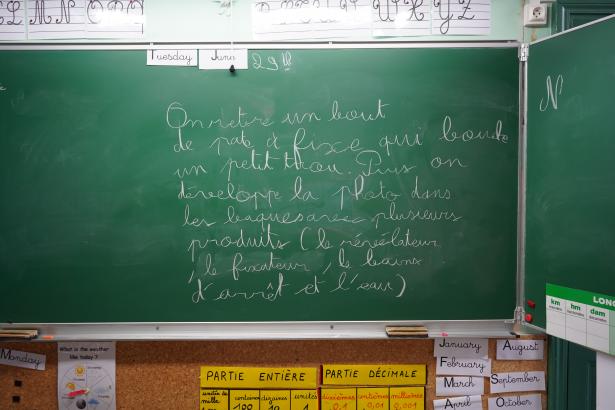 Tuesday June 29th
On retire un bout
de pate à fixe qui bouche
un petit trou. Puis on
développe la photo dans
les baques avec plusieurs
produits (le révélateur
, le fixateur, le bains
d'arrêt et l'eau)
N
km hm dam
LONG
Monday
What is the weather like today?
PARTIE ENTIÈRE PARTIE DÉCIMALE
unités de mille centaines dizaines unités dixièmes centièmes millièmes
100 10 1 0,1 0,01 0,001
January August
February
March September
April October